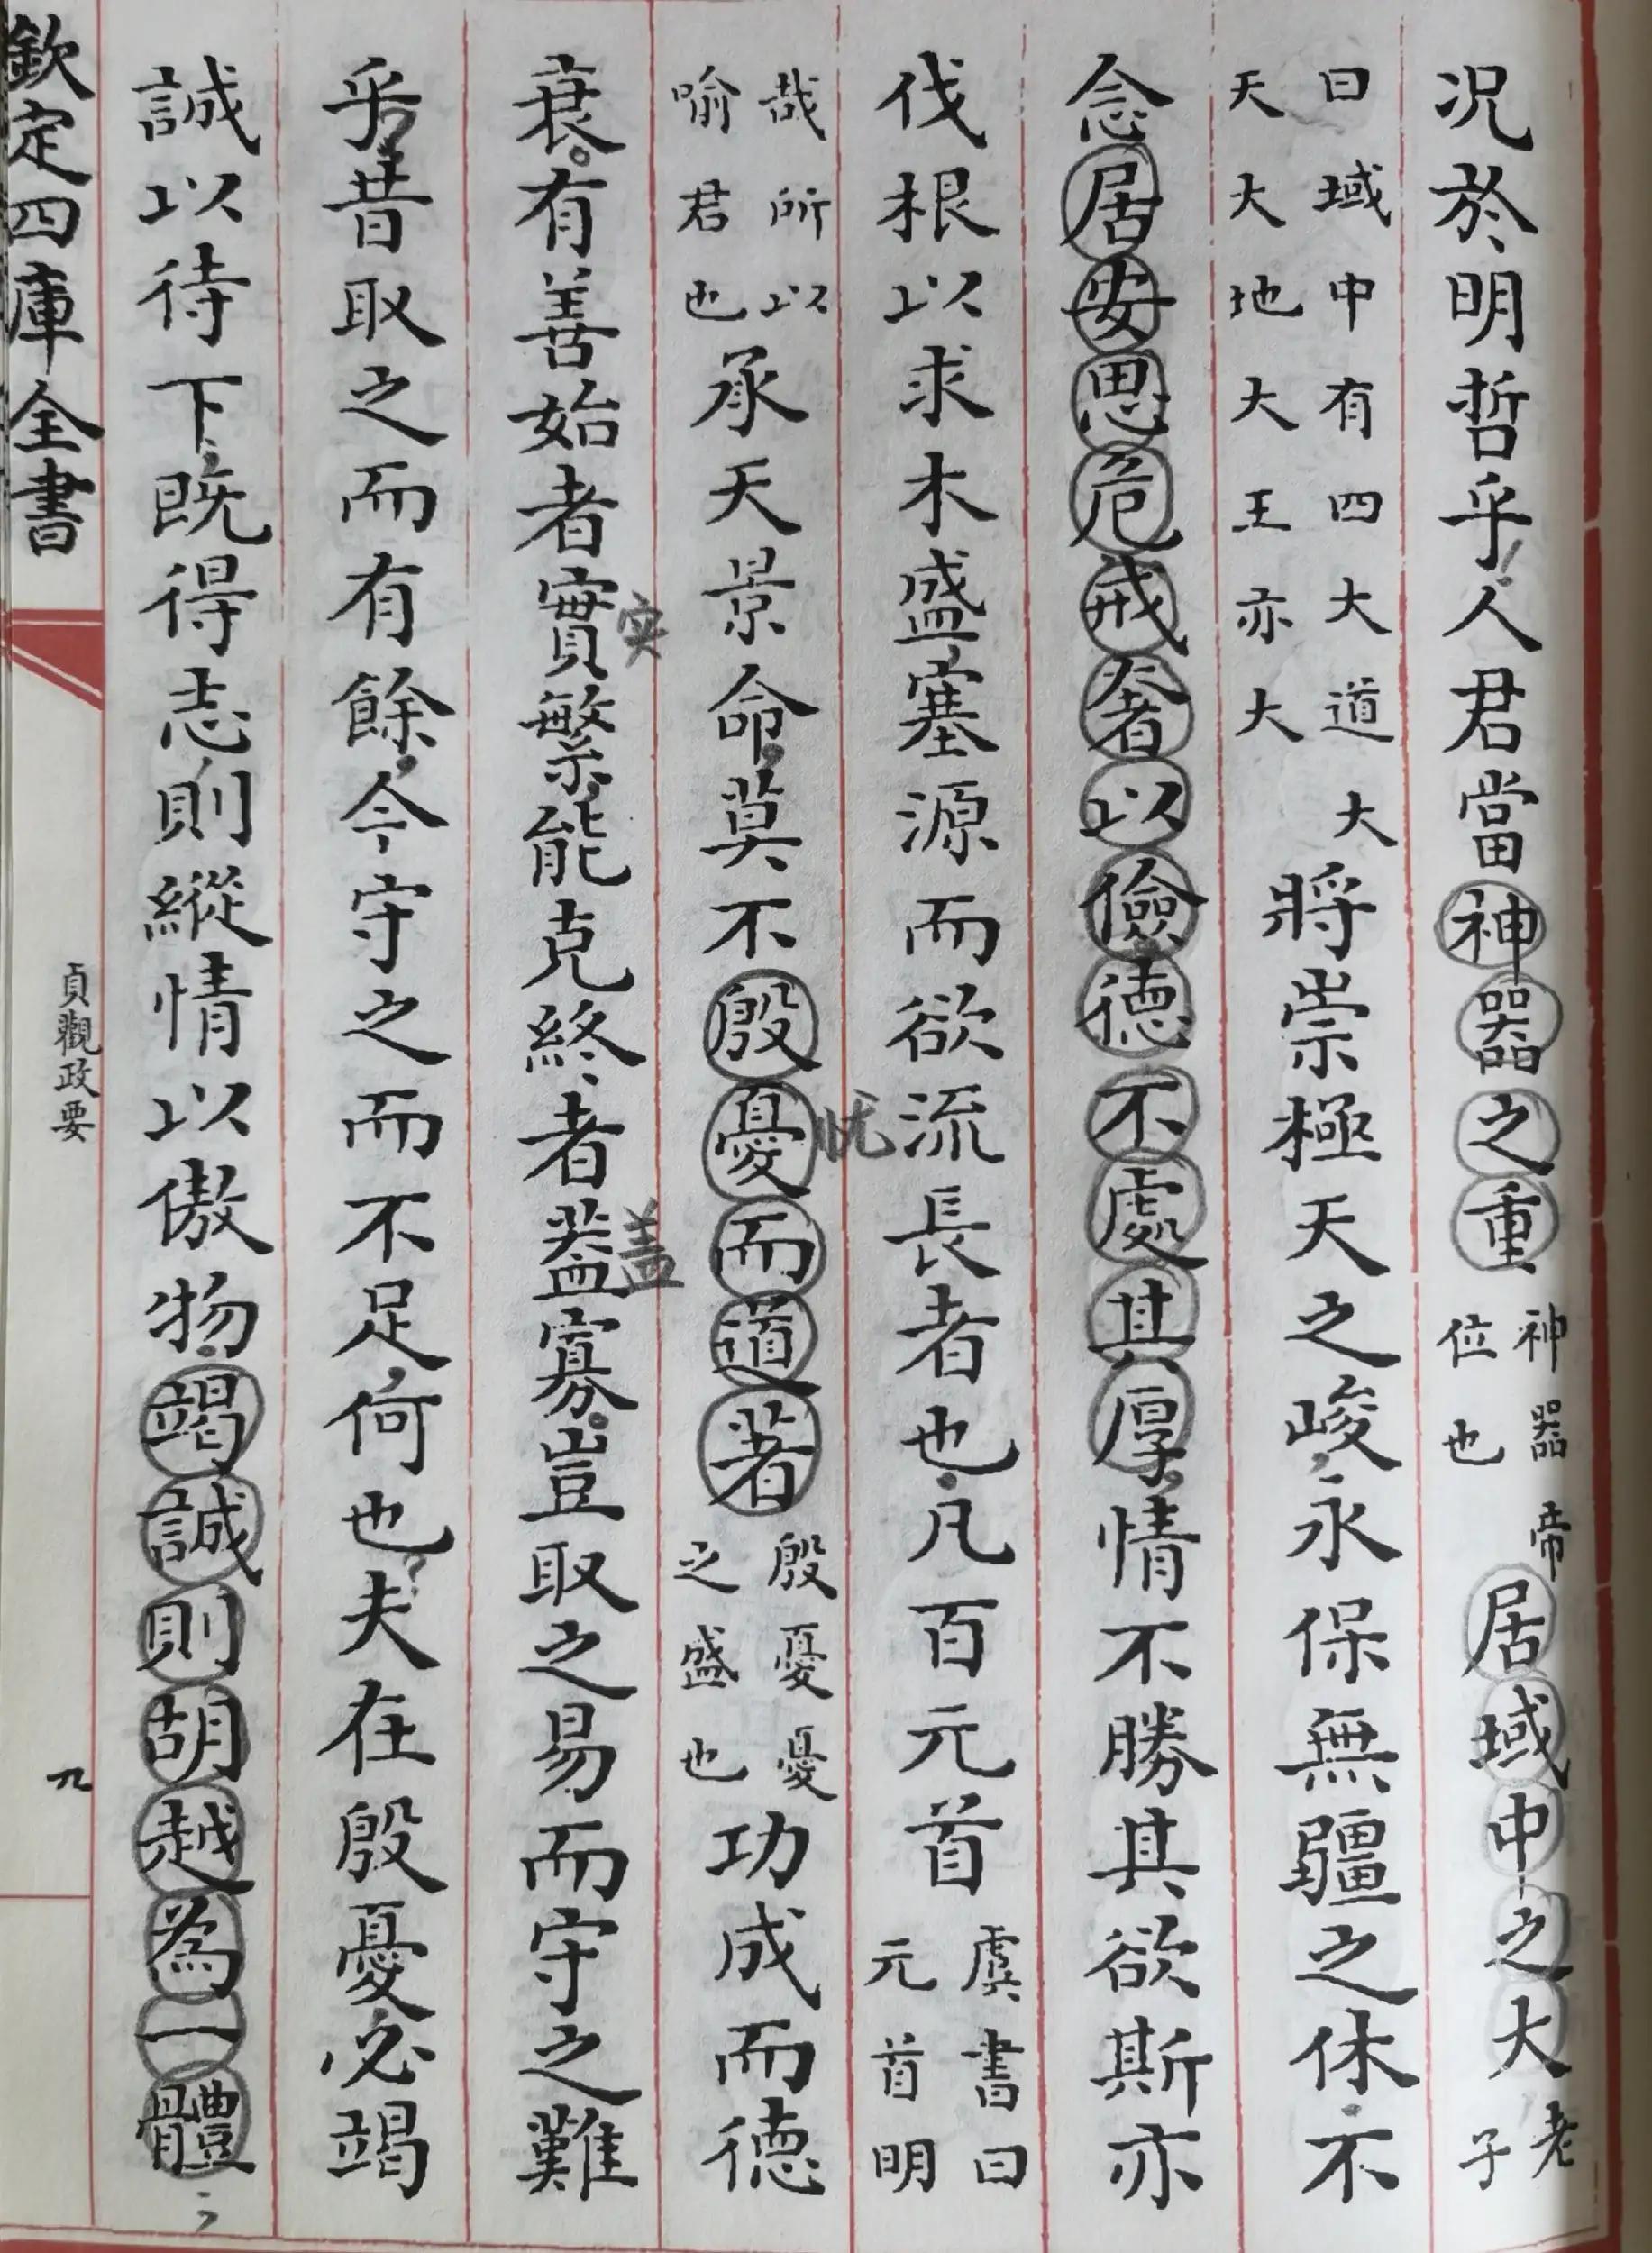 况於明哲乎人君當神器之重神器帝位也居域中之大老子
曰域中有四大道大天大地大王亦大將崇極天之峻永保無疆之休不
念居安思危戒奢以儉德不處其厚情不勝其欲斯亦
伐根以求木盛塞源而欲流長者也凡百元首虞書曰元首明
忧
哉所以喻君也承天景命莫不殷憂而道著殷憂憂之盛也功成而德
实
盖
衰有善始者實繁能克終者葢寡豈取之易而守之難
乎昔取之而有餘今守之而不足何也夫在殷憂必竭
誠以待下既得志則縱情以傲物竭誠則胡越為一體
欽定四庫全書
貞觀政要
九